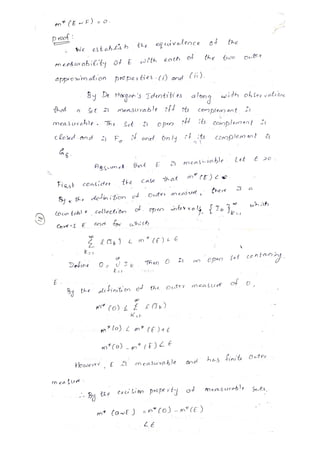 m* (E ~ F) = 0.
Proof:
We establish the equivalence of the
measurability of E with each of the two outer
approximation properties (i) and (ii).
By De Morgan's Identities along with observation
that a set is measurable iff its complement is
measurable. The set is open iff its complement is
closed and is Fσ if and only if its complement is
Gδ.
Assume that E is measurable. Let ε > 0.
First consider the case that m*(E) < ∞
By, the definition of outer measure, there is a
countable collection of open intervals { Ik }∞k=1 which
covers E and for which
∞Σk=1 ℓ(Ik) < m*(E) + ε
Define O = ∞∪k=1 Ik Then O is an open set containing
E.
By the definition of the outer measure of O,
m*(O) ≤ ∞Σk=1 ℓ(Ik)
m*(O) < m*(E) + ε
m*(O) - m*(E) < ε
However, E is measurable and has finite outer
measure.
∴ By the excision property of measurable sets,
m* (O~E) = m*(O) - m*(E)
< ε